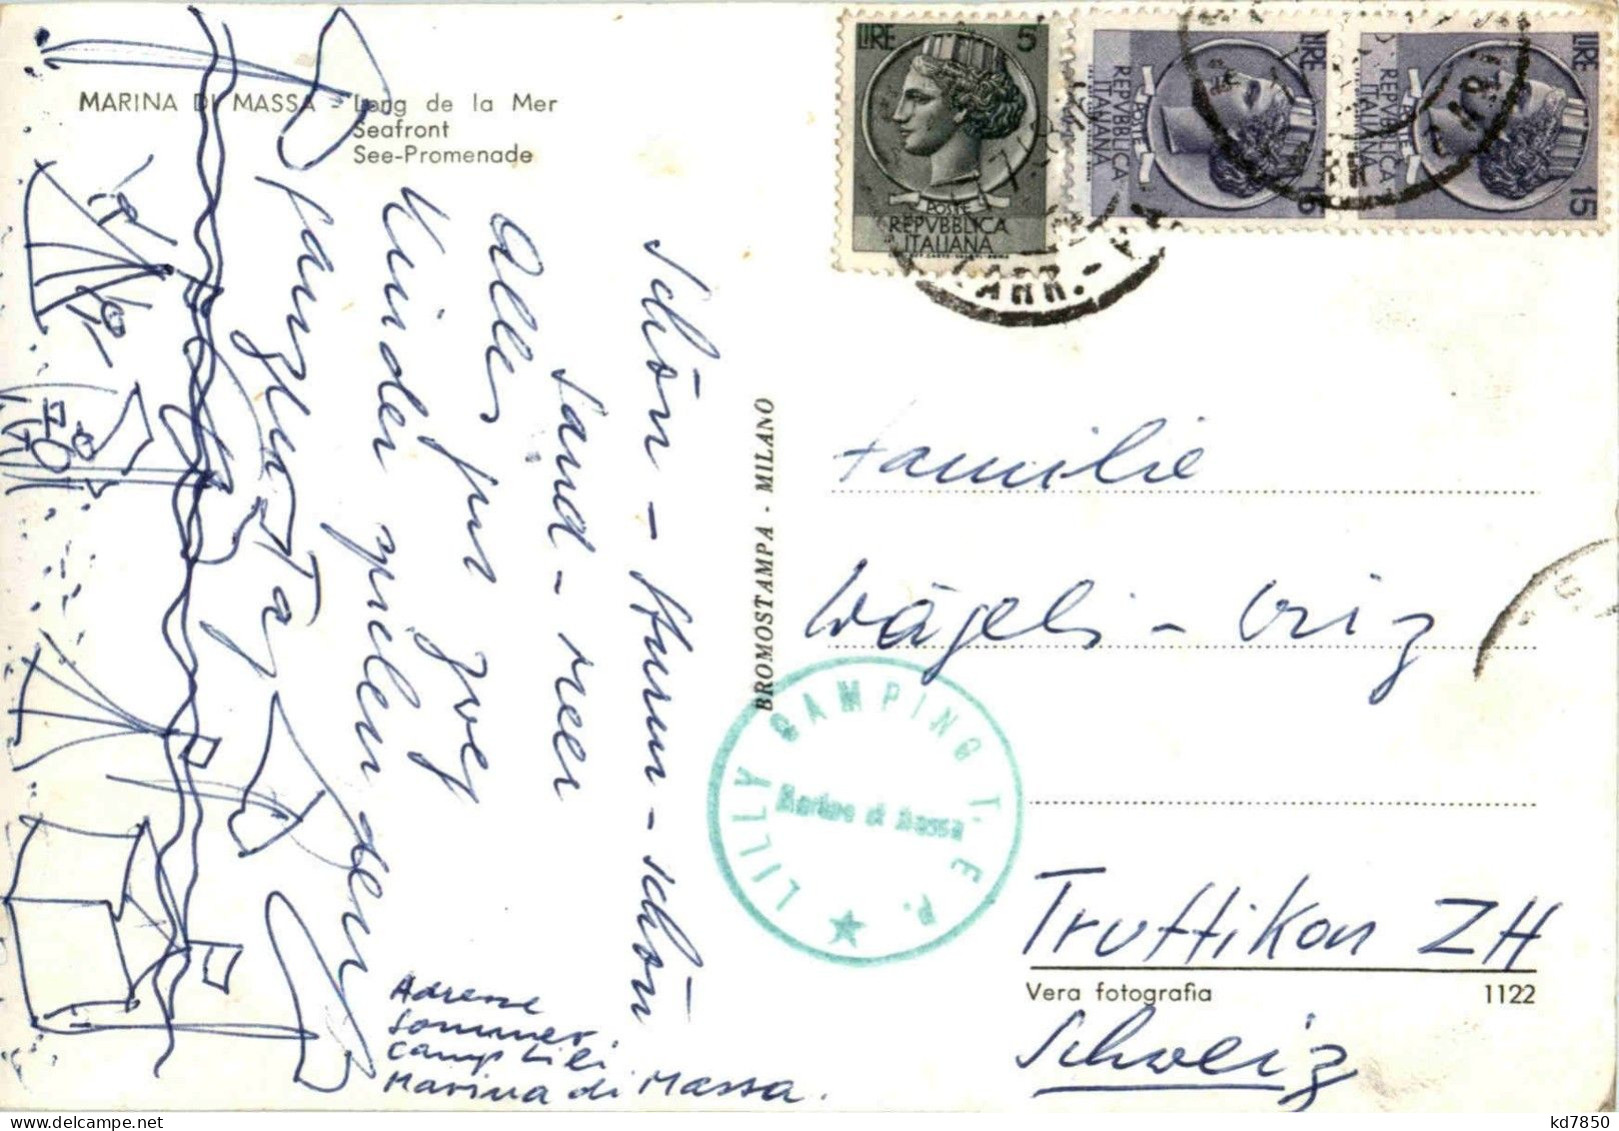 MARINA DI MASSA - Long de la Mer
Seafront
See-Promenade
Schön - Sturm - schön
Sand - Meer
Alles pur
Kinder spielen den
ganzen Tag
Adresse
Sommer
Camp Lili
Marina di Massa.
BROMOSTAMPA - MILANO
LIRE 5
POSTE
REPVBBLICA
ITALIANA
LIRE 15
POSTE
REPVBBLICA
ITALIANA
LIRE 15
POSTE
REPVBBLICA
ITALIANA
CARR.
Familie
Wägeli -
Truttikon ZH
Schweiz
LILLY CAMPING T. E. P.
Marina di Massa
Vera fotografia 1122
kd7850